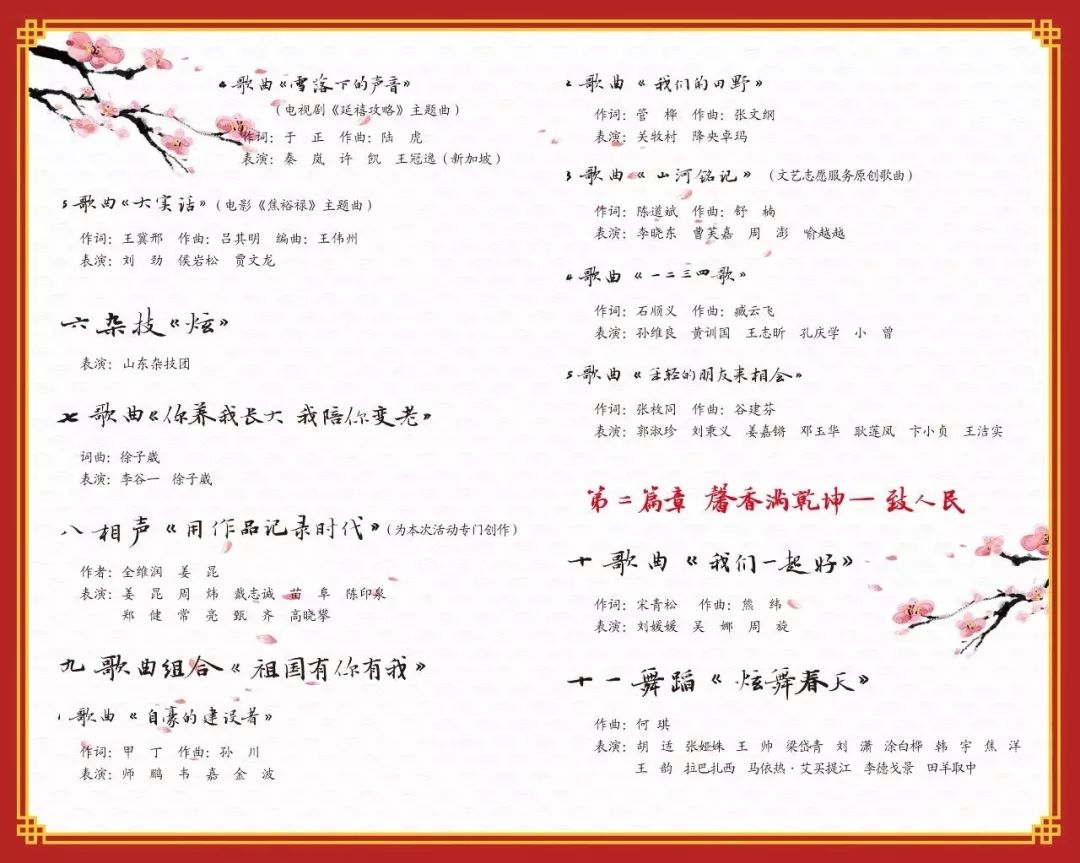 4 歌曲《雪落下的声音》
（电视剧《延禧攻略》主题曲）
作词：于 正 作曲：陆 虎
表演：秦 岚 许 凯 王冠逸（新加坡）
5 歌曲《大实话》（电影《焦裕禄》主题曲）
作词：王冀邢 作曲：吕其明 编曲：王伟州
表演：刘 劲 侯岩松 贾文龙
六 杂技《炫》
表演：山东杂技团
七 歌曲《你养我长大 我陪你变老》
词曲：徐子崴
表演：李谷一 徐子崴
八 相声《用作品记录时代》（为本次活动专门创作）
作者：全维润 姜 昆
表演：姜 昆 周 炜 戴志诚 苗 阜 陈印泉
郑 健 常 亮 甄 齐 高晓攀
九 歌曲组合《祖国有你有我》
1 歌曲《自豪的建设者》
作词：甲 丁 作曲：孙 川
表演：师 鹏 韦 嘉 金 波
2 歌曲《我们的田野》
作词：管 桦 作曲：张文纲
表演：关牧村 降央卓玛
3 歌曲《山河铭记》（文艺志愿服务原创歌曲）
作词：陈道斌 作曲：舒 楠
表演：李晓东 曹芙嘉 周 澎 喻越越
4 歌曲《一二三四歌》
作词：石顺义 作曲：臧云飞
表演：孙维良 黄训国 王志昕 孔庆学 小 曾
5 歌曲《年轻的朋友来相会》
作词：张枚同 作曲：谷建芬
表演：郭淑珍 刘秉义 姜嘉锵 邓玉华 耿莲凤 卞小贞 王洁实
第二篇章 馨香满乾坤—致人民
十 歌曲《我们一起好》
作词：宋青松 作曲：熊 纬
表演：刘媛媛 吴 娜 周 旋
十一 舞蹈《炫舞春天》
作曲：何 琪
表演：胡 适 张娅姝 王 帅 梁岱青 刘 潇 涂白桦 韩 宇 焦 洋
王 韵 拉巴扎西 马依热·艾买提江 李德戈景 田羊取中